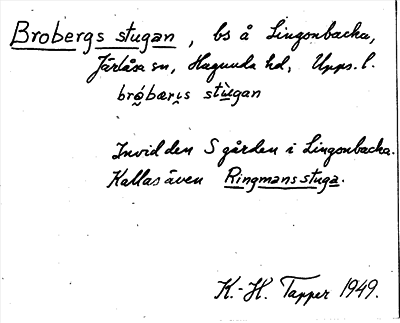 Brobergs stugan, bs å Lingonbacka,
Järlåsa sn, Hagunda hd, Upps. l.
brọ́bæris stùgan
Invid den S gården i Lingonbacka.
Kallas även Ringmansstuga.
K.-H. Tapper 1949.